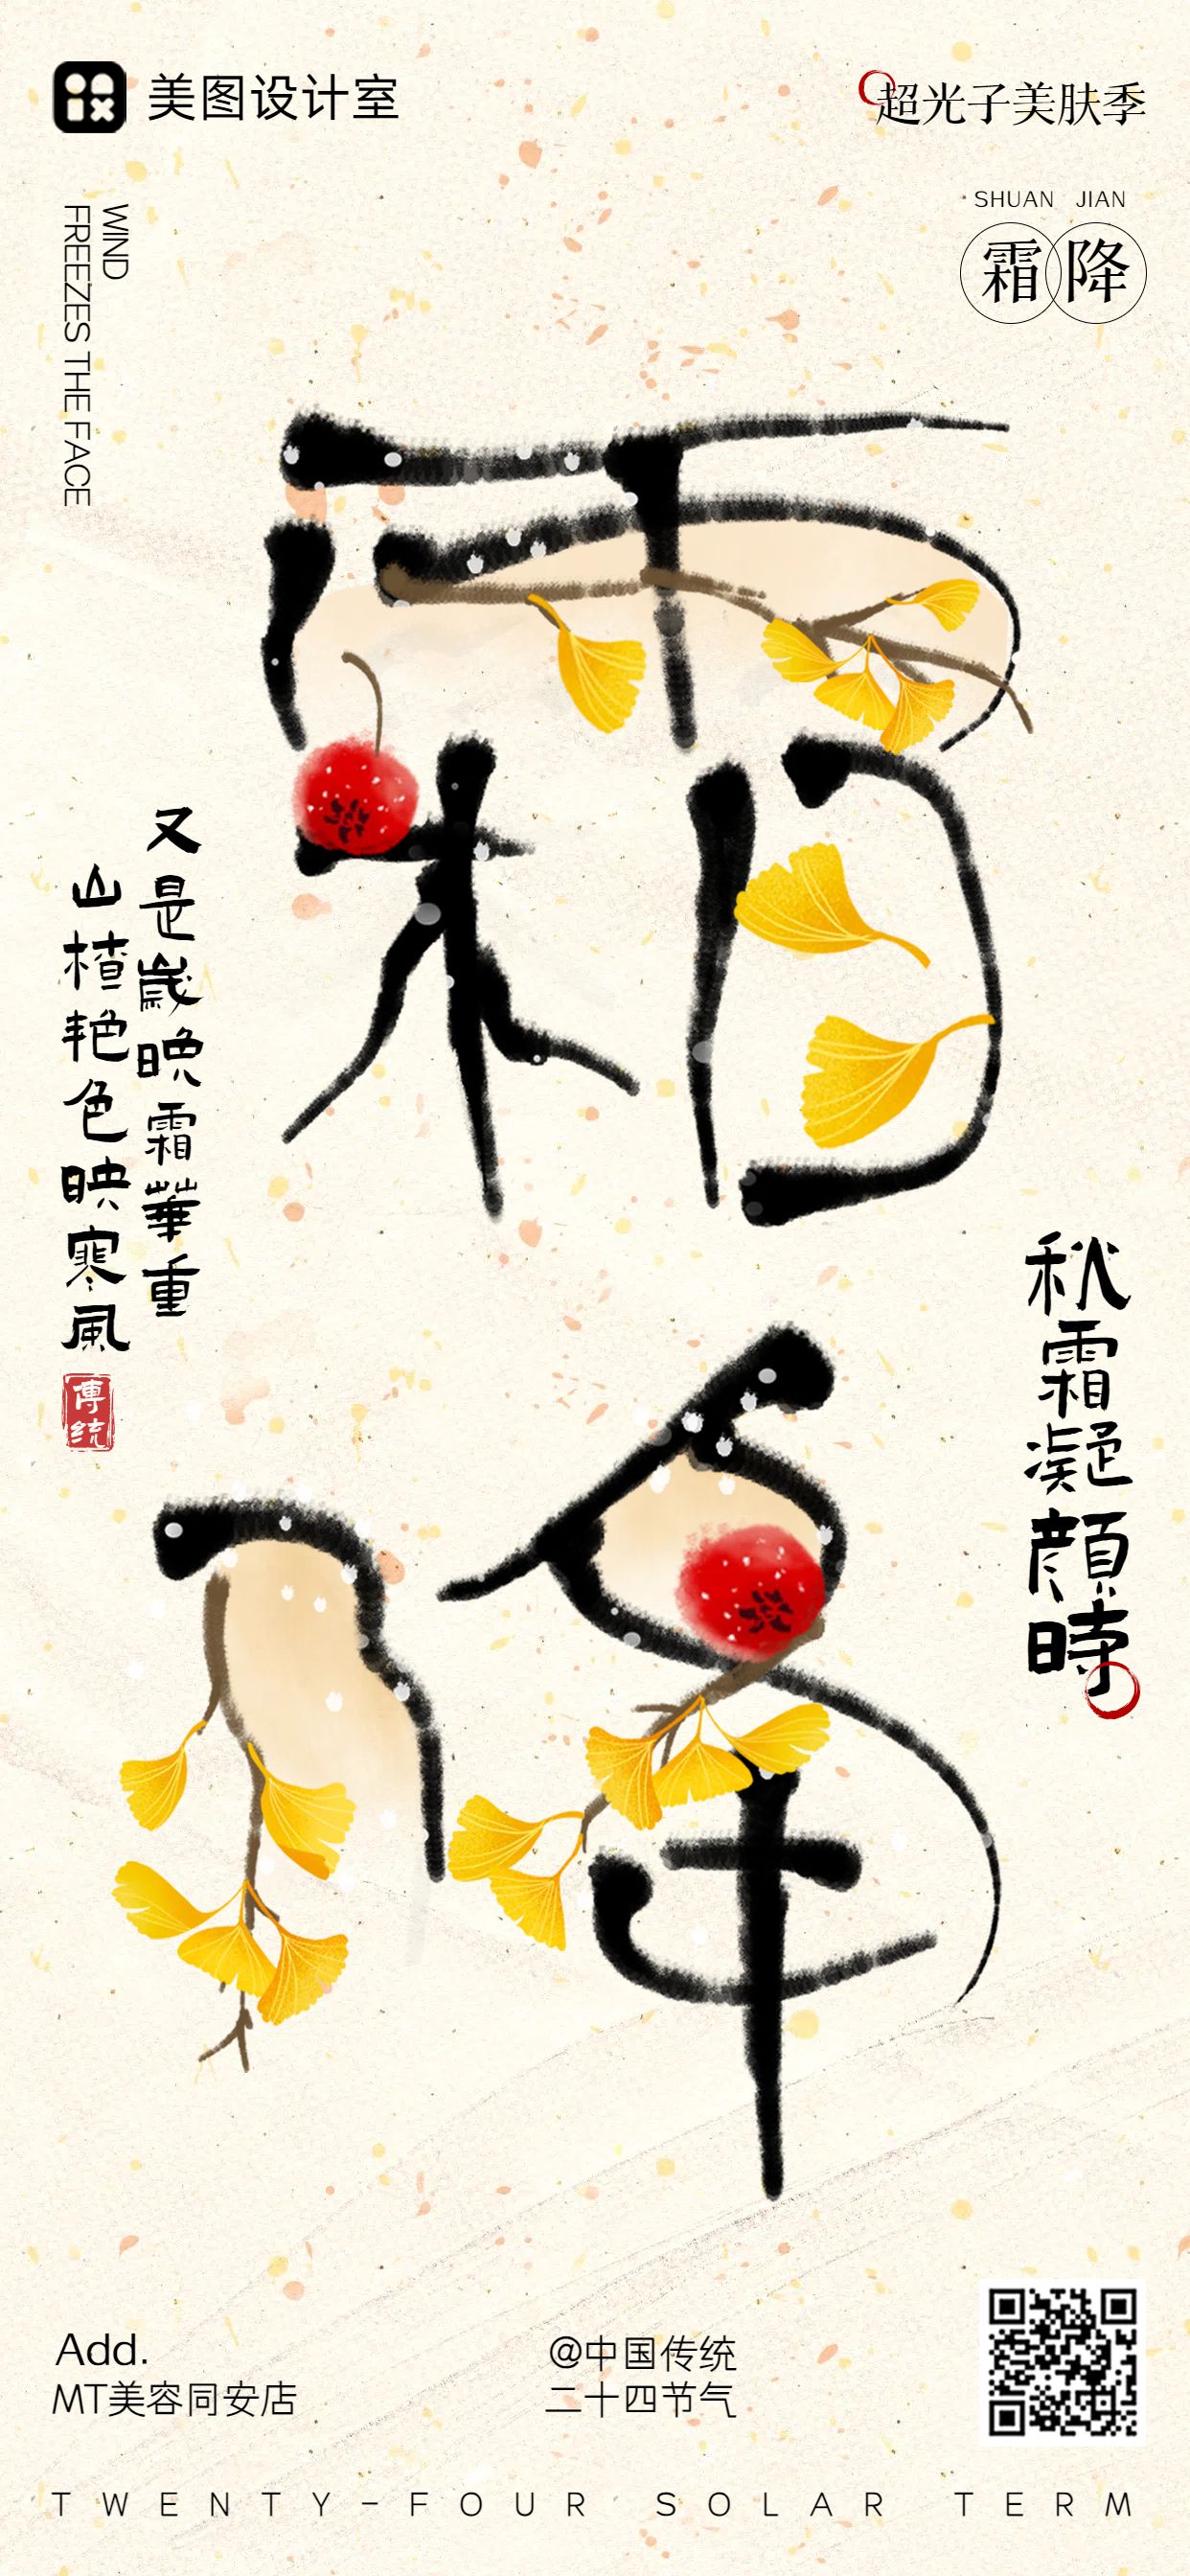 美图设计室
超光子美肤季
SHUAN JIAN
霜降
WIND
FREEZES THE FACE
霜
降
又是歲晚霜華重
山楂艳色映寒風
傳统
秋霜凝顔時
Add.
MT美容同安店
@中国传统
二十四节气
TWENTY-FOUR SOLAR TERM